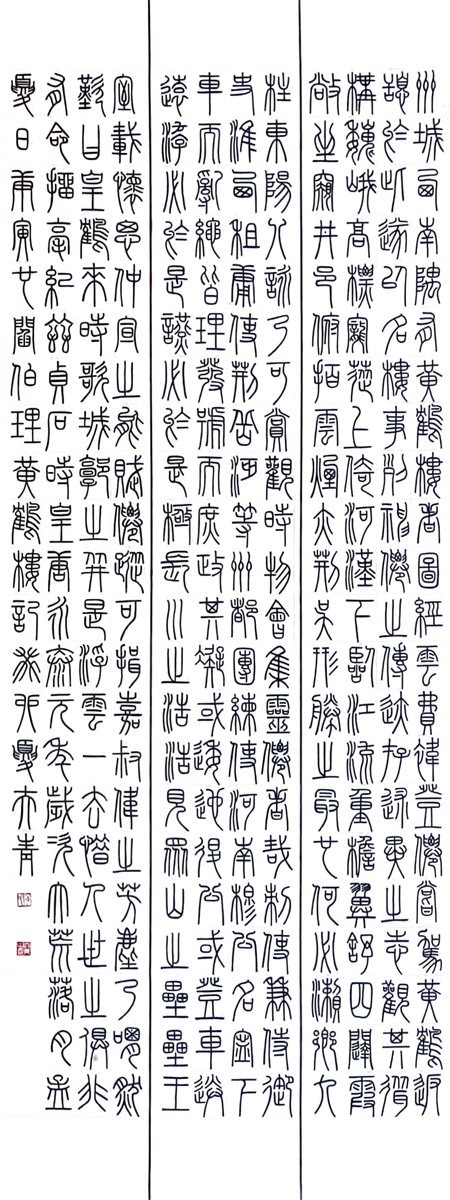 州城西南隅有黃鶴樓者圖經雲費禕登僊嘗駕黃鶴返
憩於此遂以名樓事列神僊之傳迹存述異之志觀其聳
構巍峨高標巃嵸上倚河漢下臨江流重檐翼舒四闥霞
敞坐窺井邑俯拍雲煙亦荊吳形勝之最也何必瀨鄉九
柱東陽八詠乃可賞觀時物會集靈僊者哉刺使兼侍御
史淮西租庸使荊岳沔等州都團練使河南穆公名寧下
車而亂繩皆理發號而庶政其凝或逶迤退公或登車送
遠游必於是讌必於是極長川之浩浩見眾山之壘壘王
室載懷思仲宣之能賦僊蹤可揖嘉叔偉之芳塵乃喟然
歎曰黃鶴來時歌城郭之并是浮雲一去惜人世之俱非
有命抽毫紀茲貞石時皇唐永泰元年歲次大荒落月孟
夏日庚寅也閻伯理黃鶴樓記癸卯夏亦青